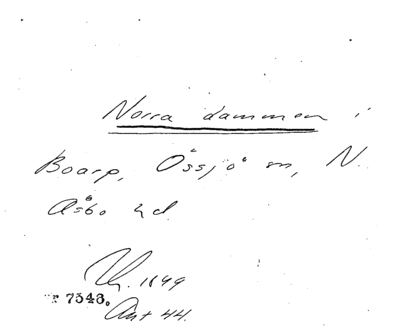 Norra dammen i
Boarp, Össjö sn, N.
Åsbo hd
1899
7543.
Ant 44.